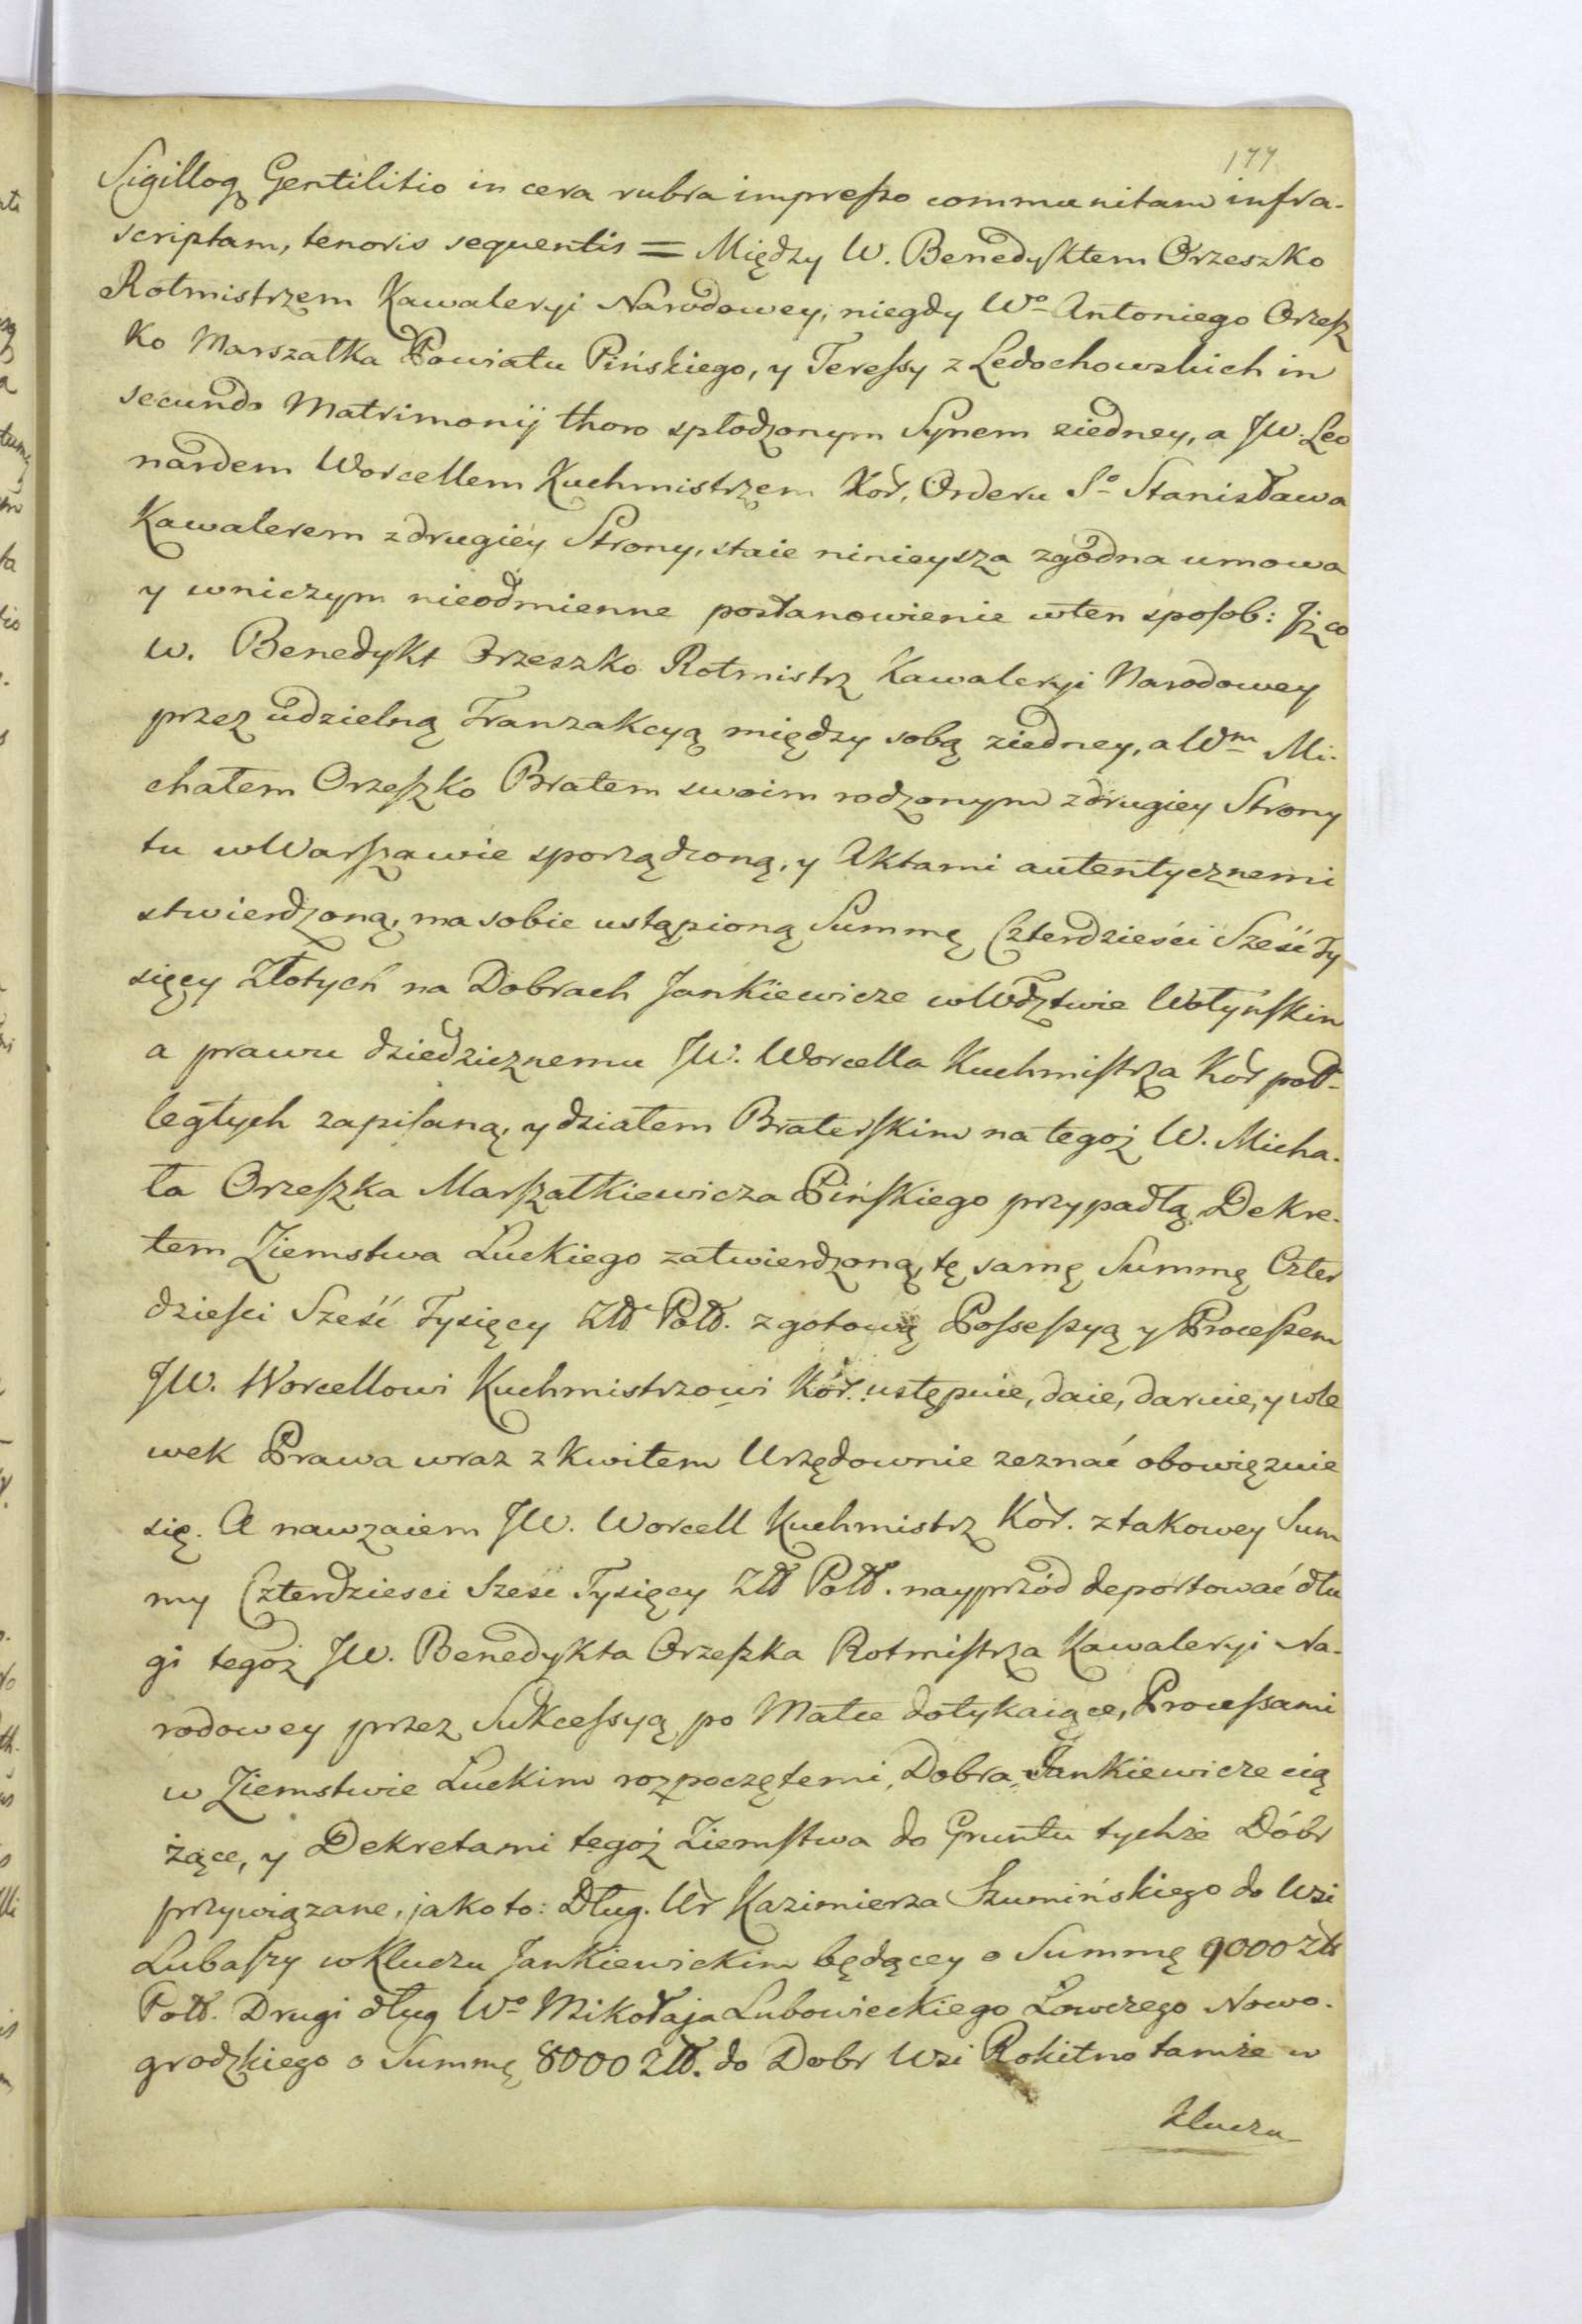 177
Sigilloq Gentilitio in cera rubra impresso communitam infra-
scriptam, tenoris sequentis = Między W. Benedyktem Orzeszko
Rotmistrzem Kawaleryi Narodowey, niegdy Wo Antoniego Orzesz
ko Marszałka Powiatu Pińskiego, y Teressy z Ledochowskich in
secundo Matrimonij thoro spłodzonym Synem ziedney, a JW. Leo
nardem Worcellem Kuchmistrzem Kor. Orderu So Stanisława
Kawalerem zdrugiey Strony, staie ninieysza zgodna umowa
y wniczym nieodmienne postanowienie wten sposob: Jż co
W. Benedykt Orzeszko Rotmistrz Kawaleryi Narodowey
przez udzielną Tranzakcyą między sobą ziedney, a Wm Mi-
chałem Orzeszko Bratem swoim rodzonym zdrugiey Strony
tu wWarszawie sporządzoną, y Aktami autentycznemi
stwierdzoną, ma sobie ustąpioną Summę Czterdzieści Sześć Ty
sięcy Złotych na Dobrach Jankiewicze wWdztwie Wołyńskim
a prawu dziedzicznemu JW. Worcella Kuchmistrza Kor pod-
ległych zapisaną, y działem Braterskim na tegoż W. Micha-
ła Orzeszka Marszałkiewicza Pińskiego przypadłą, Dekre-
tem Ziemstwa Łuckiego zatwierdzoną, tę samę Summę Czter
dzieści Sześć Tysięcy Złł Poll. z gotową Possessyą y Processem
JW. Worcellowi Kuchmistrzowi Kor. ustępuie, daie, daruie, y wle
wek Prawa wraz z Kwitem Urzędownie zeznać obowięzuie
się. A nawzaiem JW. Worcell Kuchmistrz Kor. z takowey Sum
my Czterdziesci Sześć Tysięcy Złł Poll. nayprzód deportować dłu
gi tegoż JW. Benedykta Orzeszka Rotmistrza Kawaleryi Na-
rodowey przez Sukcessyą po Matce dotykaiące, Processami
w Ziemstwie Łuckim rozpoczętemi, Dobra Jankiewicze cią
żące, y Dekretami tegoż Ziemstwa do Gruntu tychże Dóbr
przywiązane, jako to: Dług. Ur Kazimierza Szumińskiego do Wsi
Lubaszy wKluczu Jankiewickim będącey o Summę 9000 Złł
Poll. Drugi dług Wo Mikołaja Lubowieckiego Łowczego Nowo-
grodzkiego o Summę 8000 Złł. do Dobr Wsi Rokitno tamże w
Kluczu